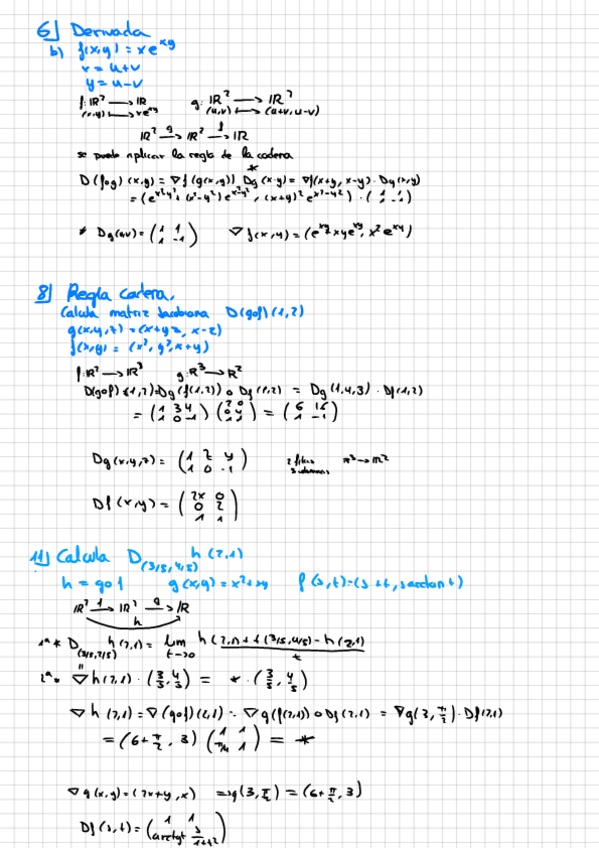 6] Derivada
b) f(x,y) = x e^{xy}
x = u+v
y = u-v
f: ℝ² → ℝ g: ℝ² → ℝ²
(x,y) ↦ xe^{xy} (u,v) ↦ (u+v, u-v)
ℝ² →^g ℝ² →^f ℝ
se puede aplicar la regla de la cadena
D(fog)(x,y) = ∇f(g(x,y)) Dg(x,y) = ∇f(x+y, x-y) · Dg(x,y)
= (e^{x²-y²} + (x²-y²) e^{x²-y²}, (x+y)² e^{x²-y²}) · (1 1; 1 -1)
* Dg(u,v) = (1 1; 1 -1) ∇f(x,y) = (e^{xy} + xye^{xy}, x² e^{xy})
8] Regla cadena.
Calcula matriz Jacobiana D(gof)(1,2)
g(x,y,z) = (x+yz, x-z)
f(x,y) = (x², y², x+y)
f: ℝ² → ℝ³ g: ℝ³ → ℝ²
D(gof)(1,2) = Dg(f(1,2)) o Df(1,2) = Dg(1,4,3) · Df(1,2)
= (1 3 4; 1 0 -1) (2 0; 0 4; 1 1) = (6 16; 1 -1)
Dg(x,y,z) = (1 z y; 1 0 -1) 2 filas ℝ³ → ℝ²
3 columnas
Df(x,y) = (2x 0; 0 2; 1 1)
11] Calcula D_{(3/5, 4/5)} h(2,1)
h = gof g(x,y) = x²+xy f(s,t) = (s+t, sarctan t)
ℝ² →^f ℝ² →^g ℝ
h
1ª * D_{(3/5, 4/5)} h(2,1) = lim_{t→0} h(2,1)+t(3/5,4/5) - h(2,1) / t
2ª * ∇h(2,1) · (3/5, 4/5) = * · (3/5, 4/5)
∇h(2,1) = ∇(gof)(2,1) = ∇g(f(2,1)) o Df(2,1) = ∇g(3, π/2) · Df(2,1)
= (6+π/2, 3) (1 1; π/4 1) = *
∇g(x,y) = (2x+y, x) => g(3, π/2) = (6+π/2, 3)
Df(s,t) = (1 1; arctgt s/1+t²)